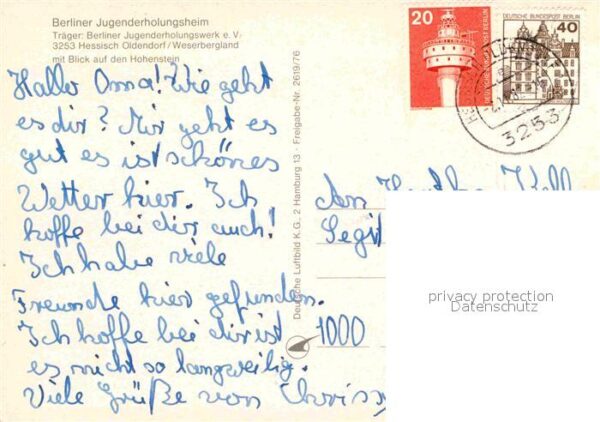 Berliner Jugenderholungsheim
Träger: Berliner Jugenderholungswerk e. V.
3253 Hessisch Oldendorf/Weserbergland
mit Blick auf den Hohenstein
Hallo Oma! Wie geht
es dir? Mir geht es
gut es ist schönes
Wetter hier. Ich
hoffe bei dir auch!
Ich habe viele
Freunde hier gefunden.
Ich hoffe bei dir ist
es nicht so langweilig.
Viele Grüße von Chrissy
Deutsche Luftbild K.G., 2 Hamburg 13 - Freigabe-Nr. 2619/76
20
DEUTSCHE BUNDESPOST BERLIN
DEUTSCHE BUNDESPOST BERLIN
40
3253
An
1000
privacy protection
Datenschutz